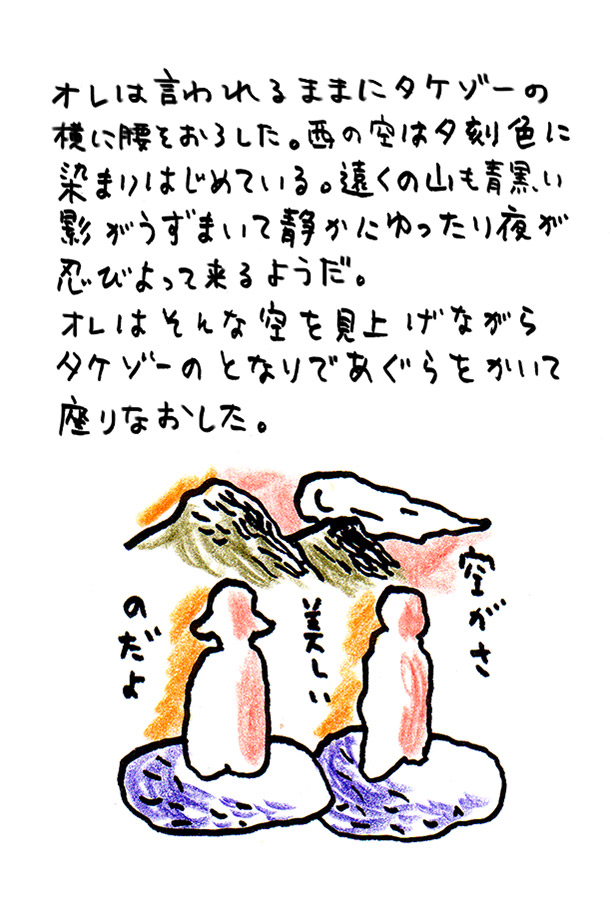 オレは言われるままにタケゾーの
横に腰をおろした。西の空は夕刻色に
染まりはじめている。遠くの山も青黒い
影がうずまいて静かにゆったり夜が
忍びよって来るようだ。
オレはそんな空を見上げながら
タケゾーのとなりであぐらをかいて
座りなおした。
空がさ
美しい
のだよ